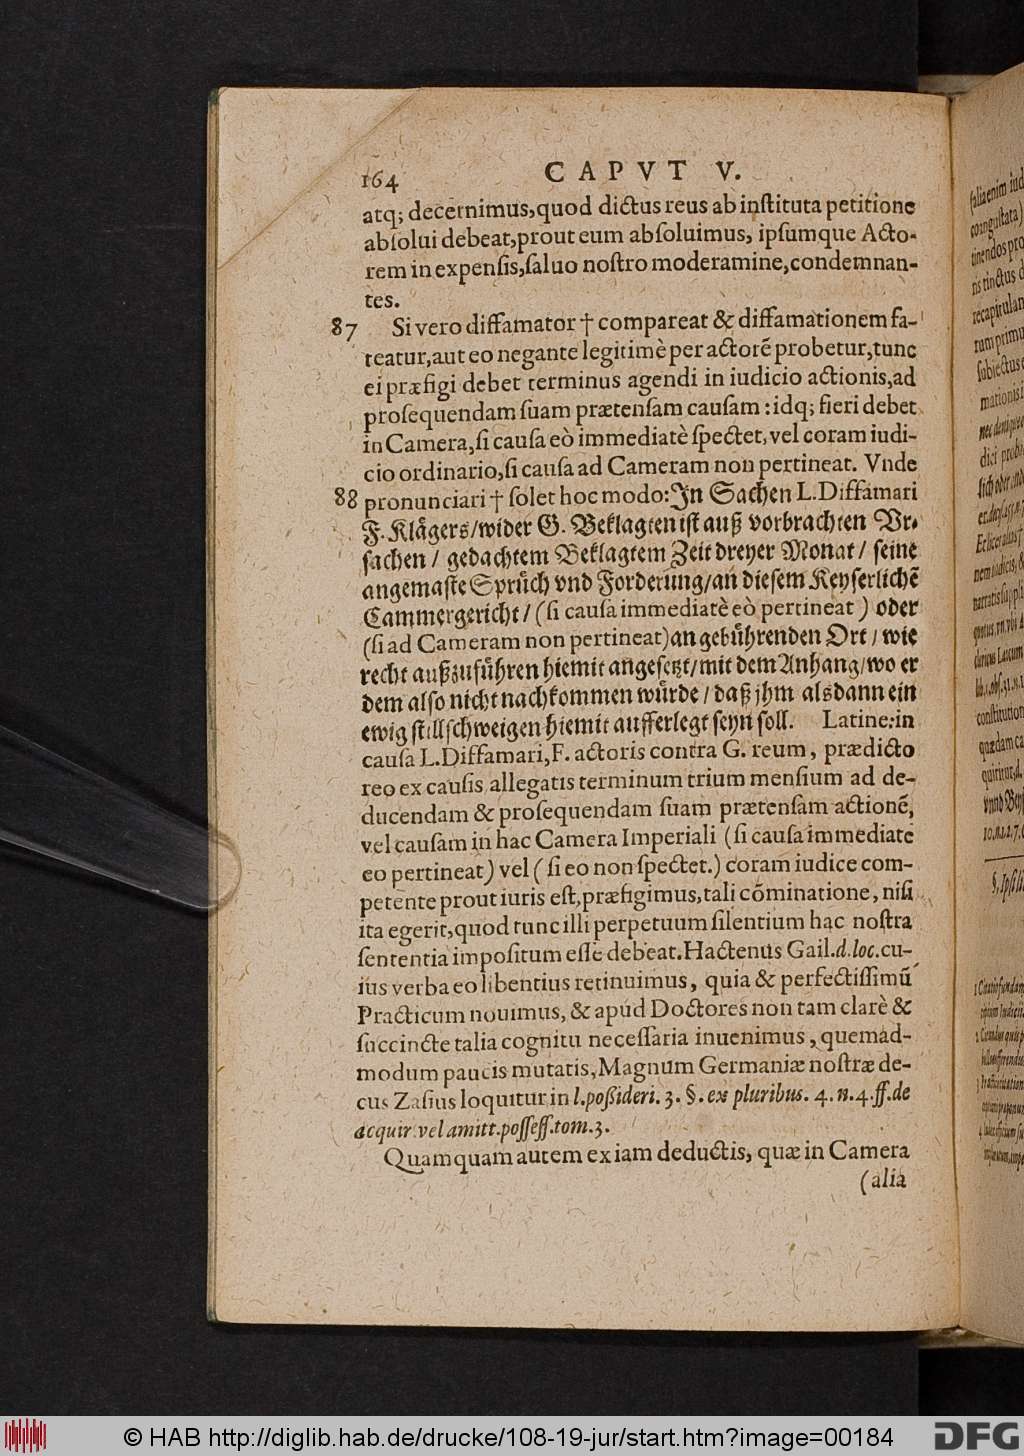 164 CAPVT V.
atq; decernimus,quod dictus reus ab inſtituta petitione
abſolui debeat,prout eum abſoluimus, ipſumque Acto-
rem in expenſis,ſaluo noſtro moderamine,condemnan-
tes.
87 Si vero diffamator † compareat & diffamationem fa-
teatur,aut eo negante legitimè per actorẽ probetur,tunc
ei præfigi debet terminus agendi in iudicio actionis,ad
proſequendam ſuam prætenſam cauſam : idq; fieri debet
in Camera,ſi cauſa eò immediatè ſpectet, vel coram iudi-
cio ordinario,ſi cauſa ad Cameram non pertineat. Vnde
88 pronunciari † ſolet hoc modo: In Sachen L.Diffamari
F. Klågers/wider G. Beklagten iſt auß vorbrachten Vr-
ſachen / gedachtem Beklagtem Zeit dreyer Monat / ſeine
angemaſte Sprůch vnd Forderung/an dieſem Keyſerlichẽ
Cammergericht/ (ſi cauſa immediatè eò pertineat ) oder
(ſi ad Cameram non pertineat)an gebůhrenden Ort/ wie
recht außzufůhren hiemit angeſetzt/mit dem Anhang/wo er
dem alſo nicht nachkommen wůrde/ daß jhm alsdann ein
ewig ſtillſchweigen hiemit aufferlegt ſeyn ſoll. Latine: in
cauſa L.Diffamari, F. actoris contra G. reum, prædicto
reo ex cauſis allegatis terminum trium menſium ad de-
ducendam & proſequendam ſuam prætenſam actionẽ,
vel cauſam in hac Camera Imperiali (ſi cauſa immediate
eo pertineat) vel ( ſi eo non ſpectet.) coram iudice com-
petente prout iuris eſt,præfigimus,tali cõminatione, niſi
ita egerit,quod tunc illi perpetuum ſilentium hac noſtra
ſententia impoſitum eſſe debeat.Hactenus Gail.d.loc.cu-
ius verba eo libentius retinuimus, quia & perfectiſſimũ
Practicum nouimus, & apud Doctores non tam clarè &
ſuccincte talia cognitu neceſſaria inuenimus, quemad-
modum paucis mutatis, Magnum Germaniæ noſtræ de-
cus Zaſius loquitur in l.poßideri. 3. §. ex pluribus. 4. n.4.ff.de
acquir.vel amitt.poſſeſſ.tom.3.
Quamquam autem ex iam deductis, quæ in Camera
(alia
© HAB http://diglib.hab.de/drucke/108-19-jur/start.htm?image=00184
DFG